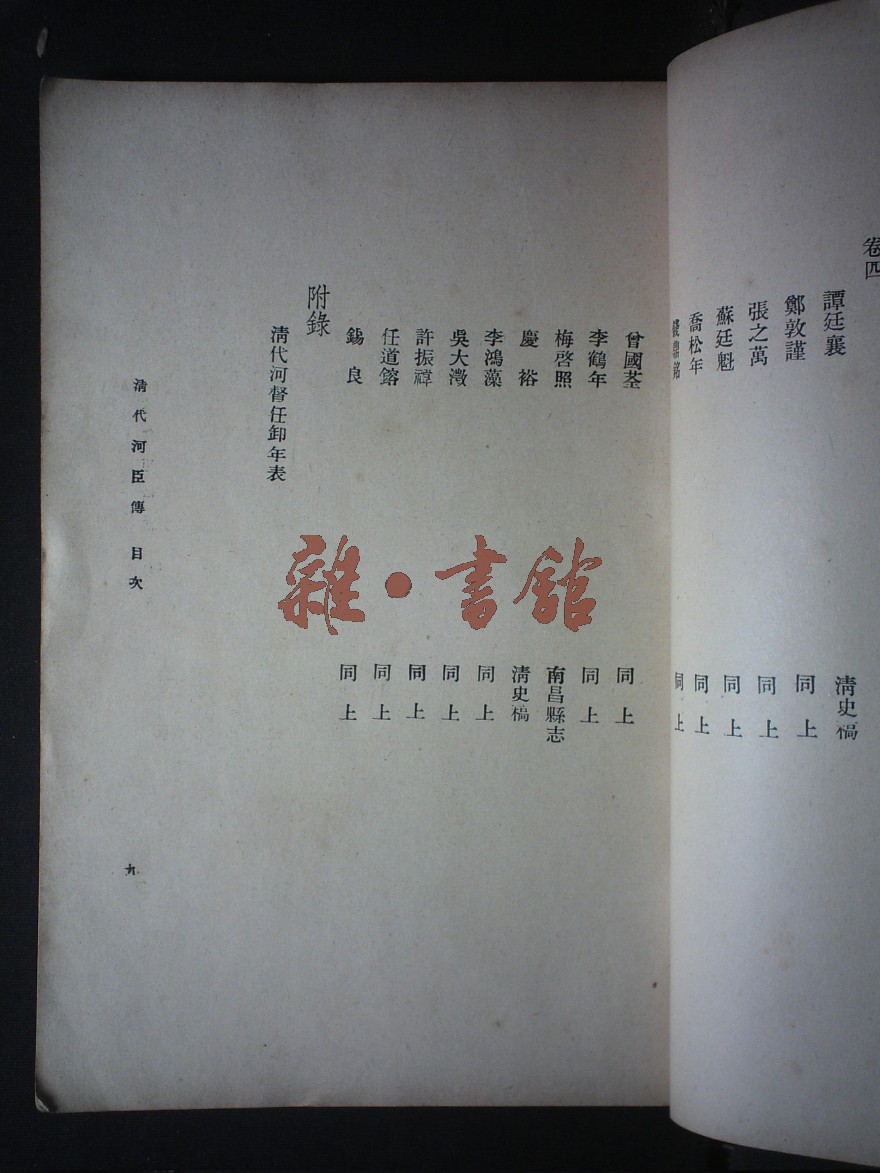 卷四
譚廷襄 清史稿
鄭敦謹 同上
張之萬 同上
蘇廷魁 同上
喬松年 同上
同上
曾國荃 同上
李鶴年 同上
梅啓照 南昌縣志
慶裕 清史稿
李鴻藻 同上
吳大澂 同上
許振禕 同上
任道鎔 同上
錫良 同上
附錄
清代河督任卸年表
清代河臣傳 目次
九
雜·書館